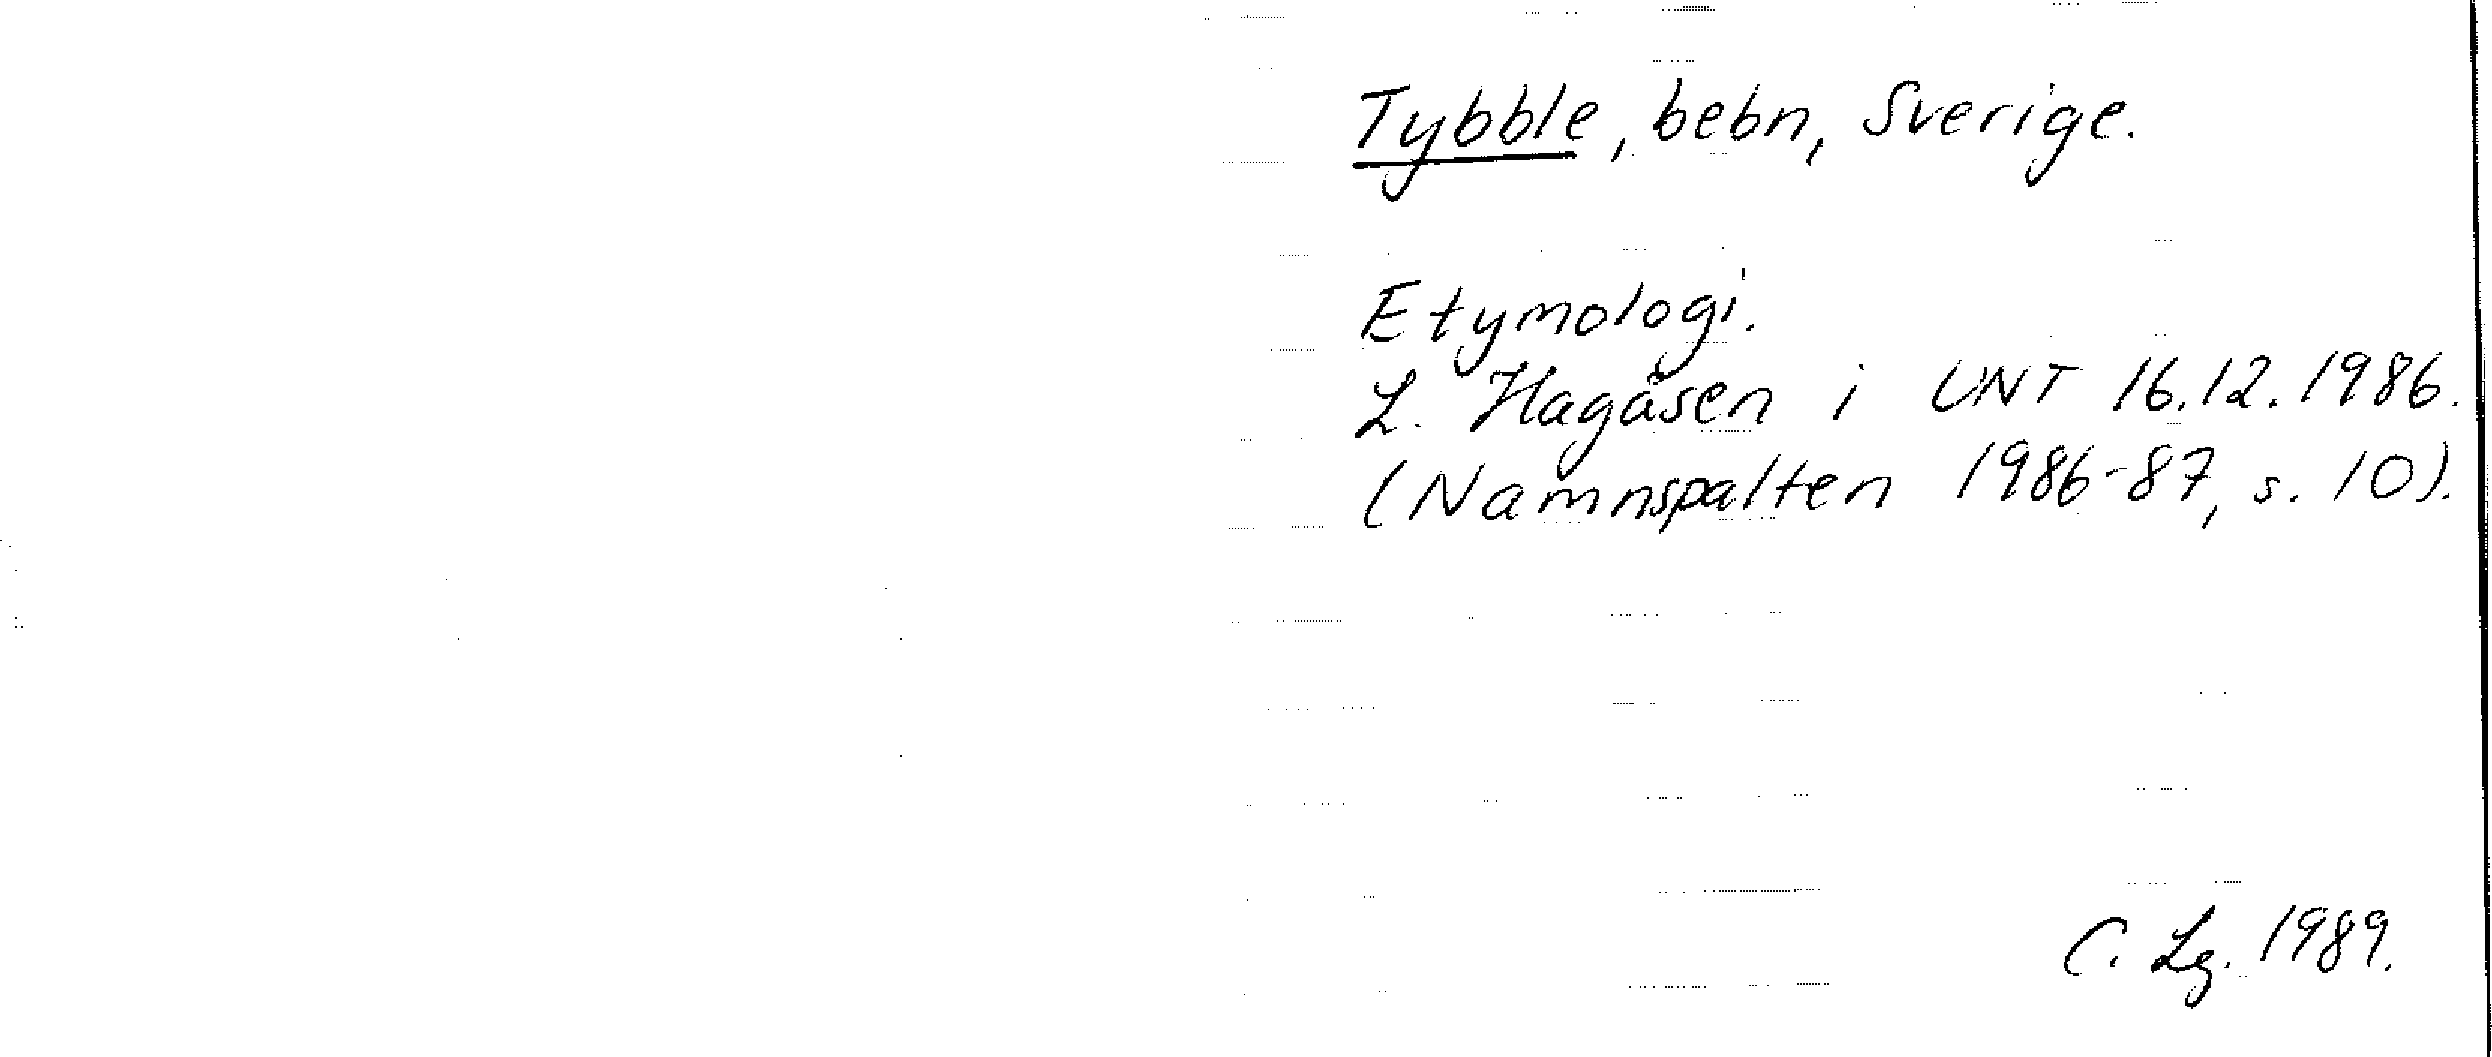 Tybble, bebn, Sverige.
Etymologi.
L. Hagåsen i UNT 16.12.1986.
(Namnspalten 1986-87, s. 10).
C. Lg. 1989.